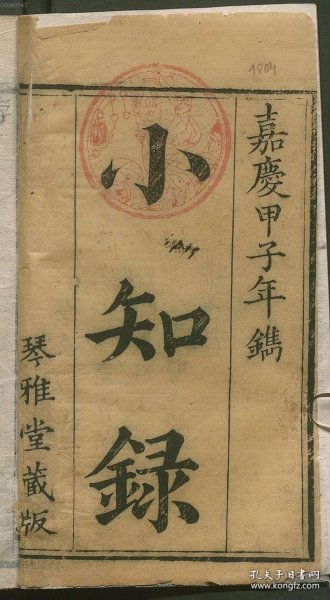 嘉慶甲子年鐫
小知録
琴雅堂藏版
1804
00090047
孔夫子旧书网